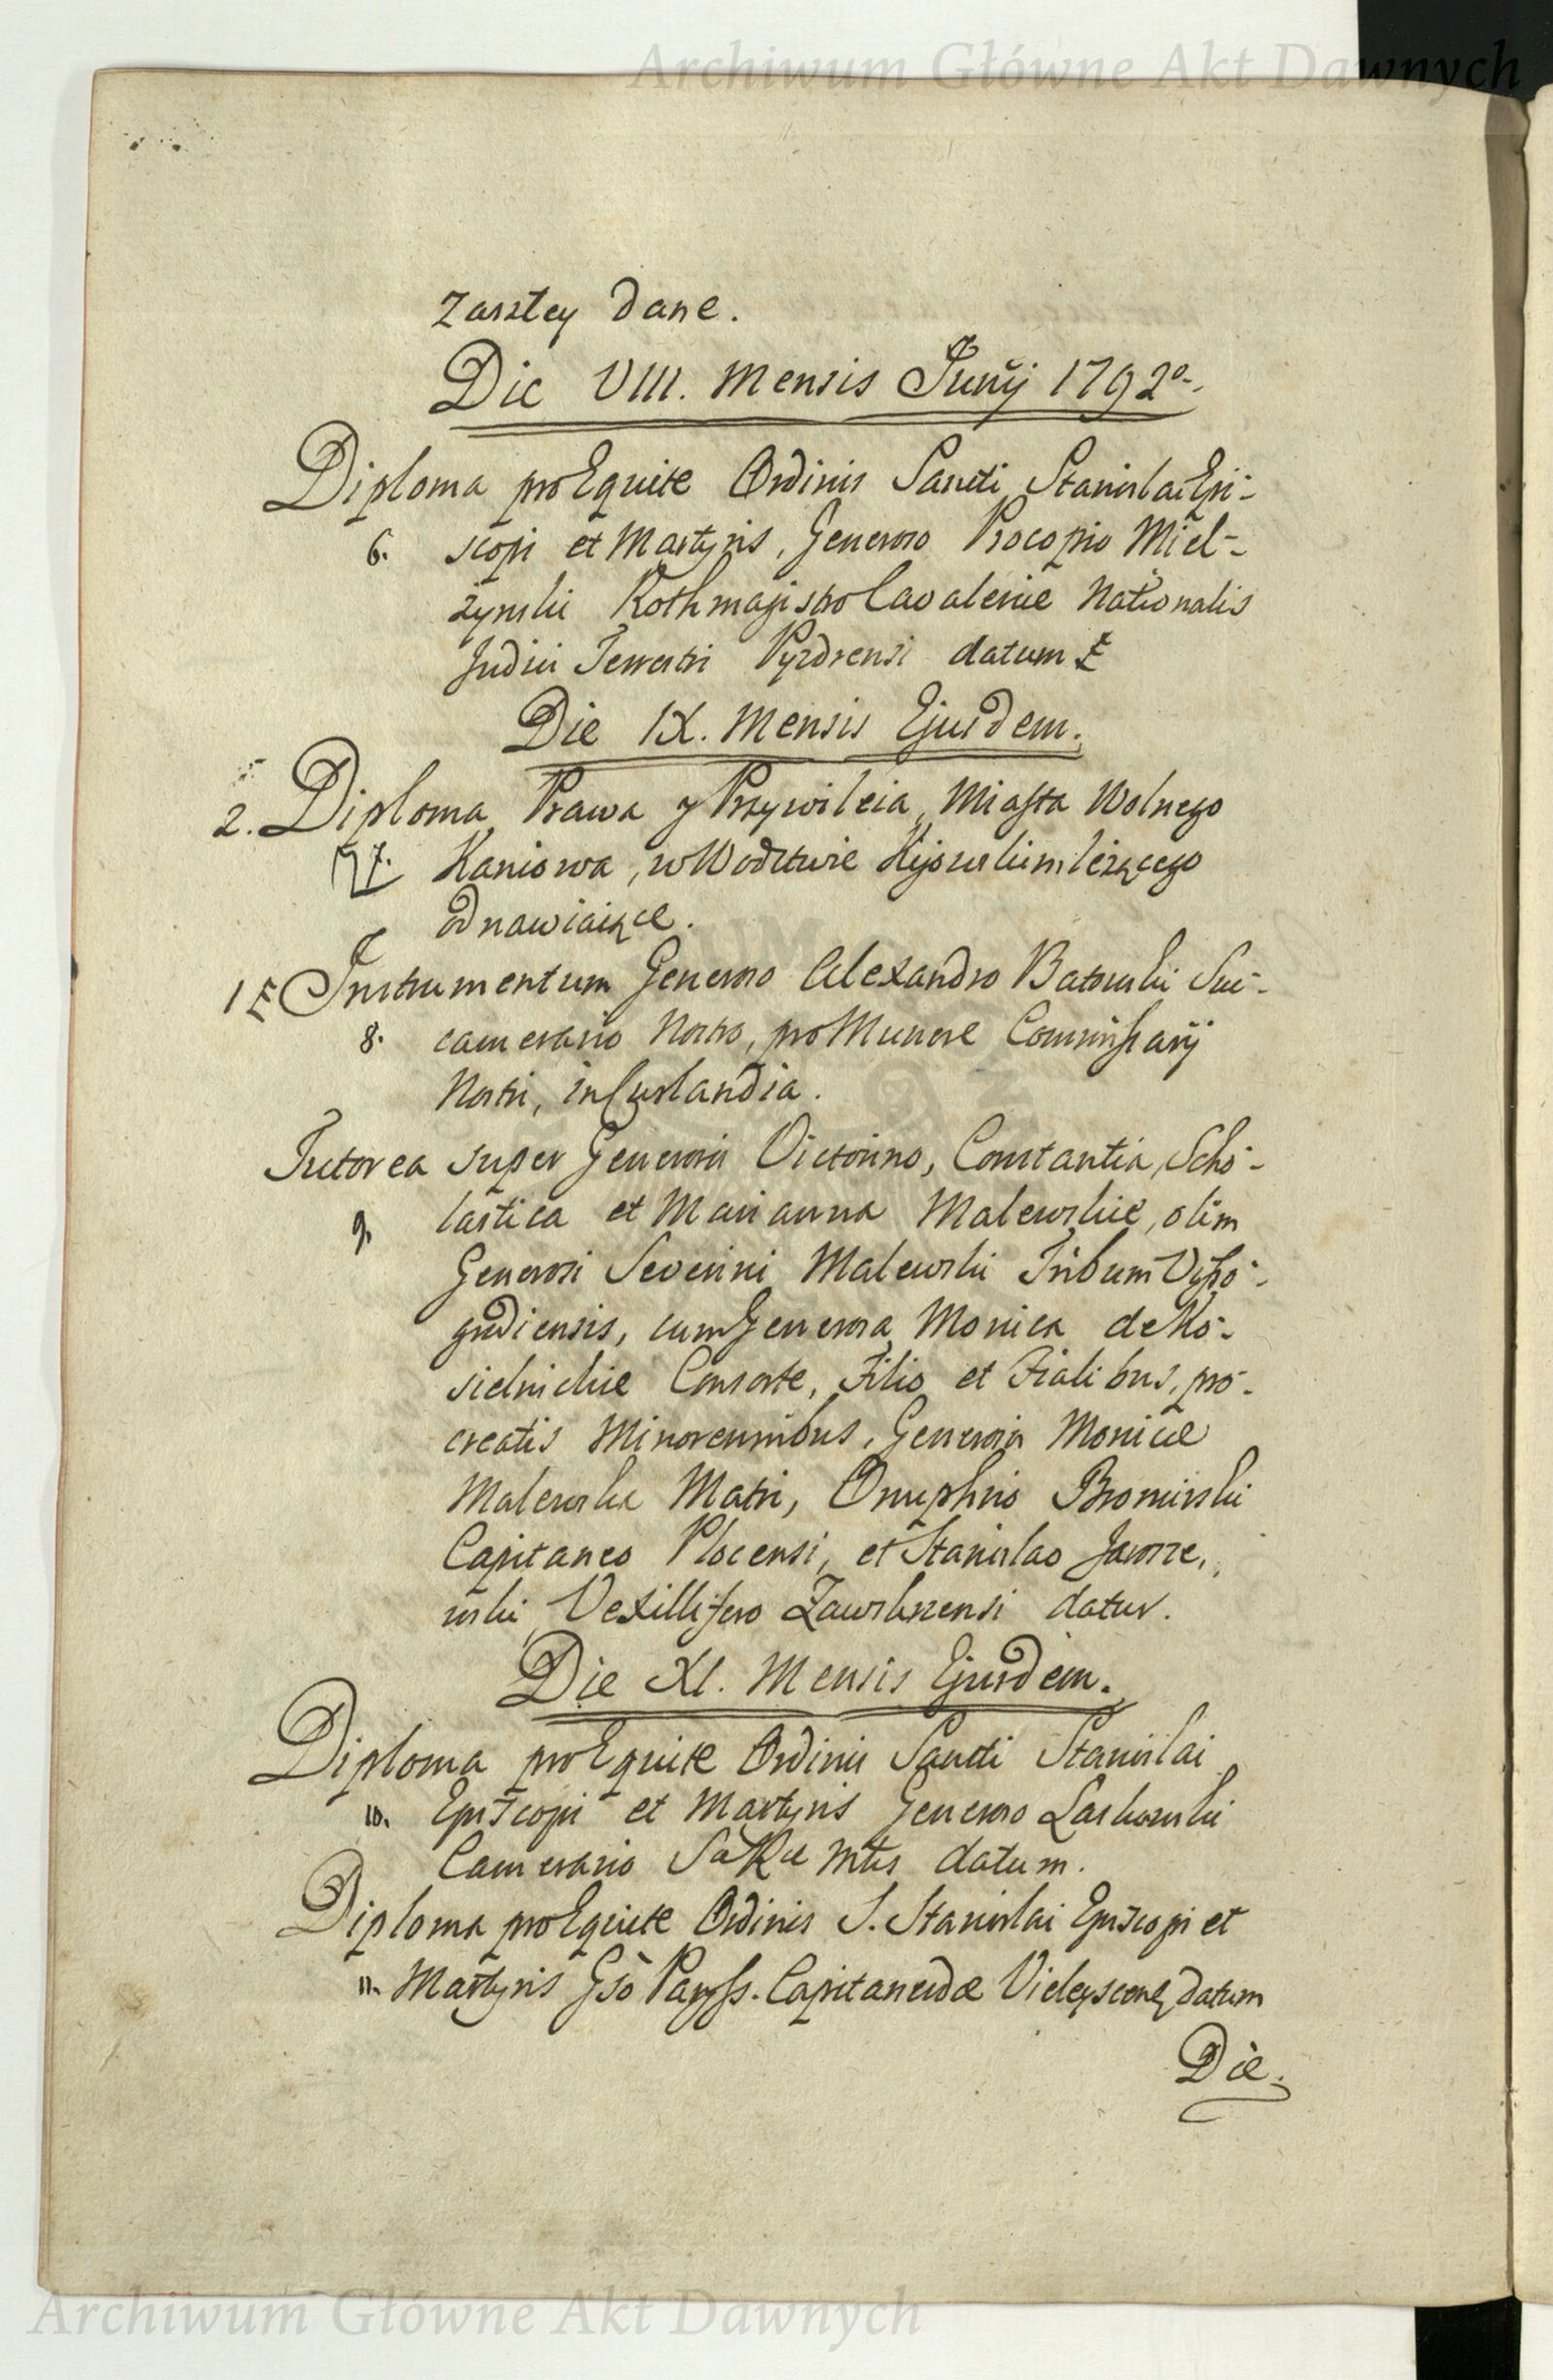 Archiwum Główne Akt Dawnych
zaszłey dane.
Die VIII. Mensis Junij 1792o.
Diploma pro Equite Ordinis Sancti Stanislai Epi-
6. scopi et Martyris, Generoso Procopio Miel-
żynski Rothmagistro Cavaleriæ Nationalis
Judici Terrestri Pyzdrensi datum
Die IX. Mensis Ejusdem.
2. Diploma Prawa y Przywileia Miasta Wolnego
7. Kaniowa, w Wodztwie Kijowskim leżącego
odnawiaiące.
1 Instrumentum Generoso Alexandro Batowski Suc-
8. camerario Nostro, pro Munere Commissarij
Nostri, in Curlandia.
Tutorea super Generosis Victorino, Constantia, Scho-
9. lastica et Marianna Malewskie, olim
Generosi Severini Malewski Tribuni Vyszo-
grdiensis, cum Generosa Monica de Ko-
sielnickie Consorte, Filio et Fialibus, pro-
creatis Minorennibus, Generosis Monicæ
Malewska Matri, Onuphrio Bromirski
Capitaneo Plocensi, et Stanislao Jaworo,
wski Vexillifero Zawskrzensi datur.
Die XI. Mensis Ejusdem.
Diploma pro Equite Ordinis Sancti Stanislai
10. Episcopi et Martyris Generoso Laskowski
Camerario Sæ Ræ Mtis datum.
Diploma pro Equite Ordinis S. Stanislai Episcopi et
11. Martyris Gso Capitaneidæ datum
Die.
Archiwum Główne Akt Dawnych